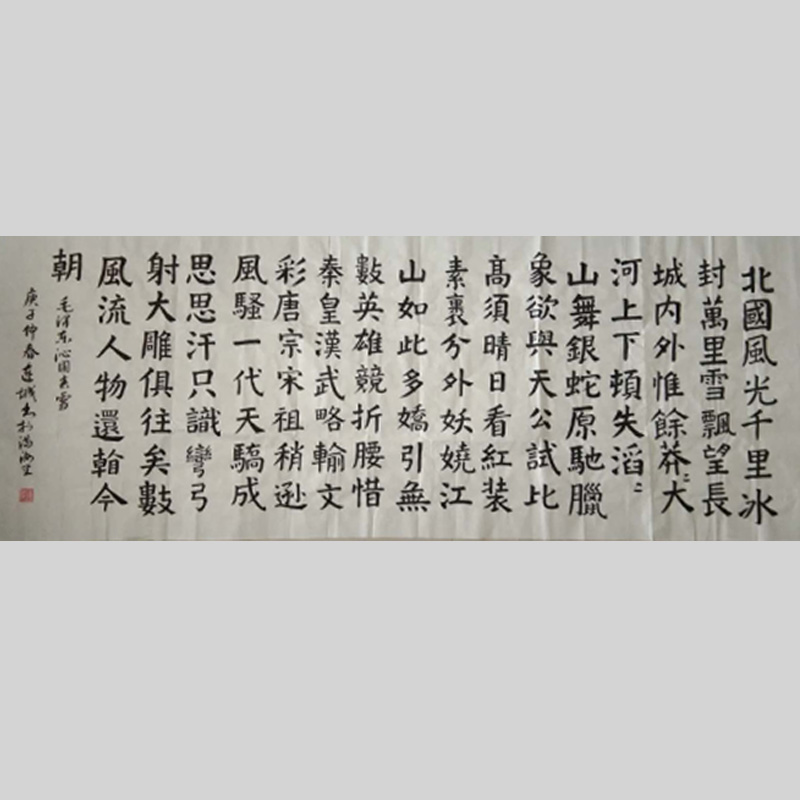 北國風光千里冰
封萬里雪飄望長
城內外惟餘莽〻大
河上下頓失滔〻
山舞銀蛇原馳臘
象欲與天公試比
高須晴日看紅装
素裹分外妖嬈江
山如此多嬌引無
數英雄競折腰惜
秦皇漢武略輸文
彩唐宗宋祖稍遜
風騷一代天驕成
思思汗只識彎弓
射大雕俱往矣數
風流人物還看今
朝
毛澤东沁园春雪
庚子仲春连城书於